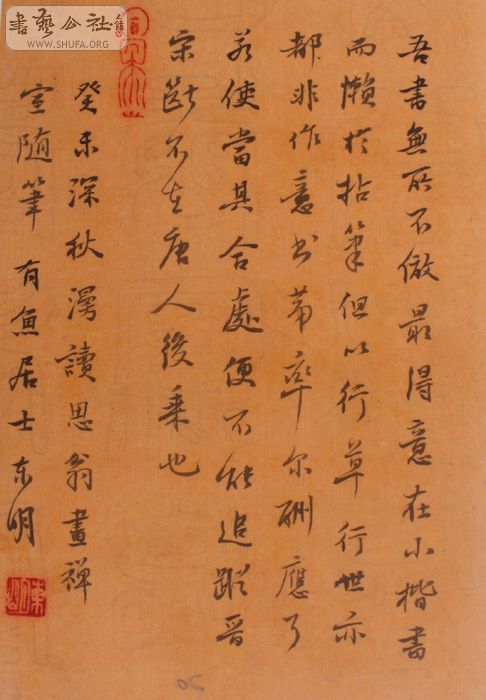 書藝公社
WWW.SHUFA.ORG
吾書無所不倣最得意在小楷書
而懶於拈筆但以行草行世亦
都非作意書苐率尔酬應耳
若使當其合處便不能追蹤晉
宋斷不在唐人後乘也
癸未深秋漫讀思翁畫禪
室随筆 有魚居士东明